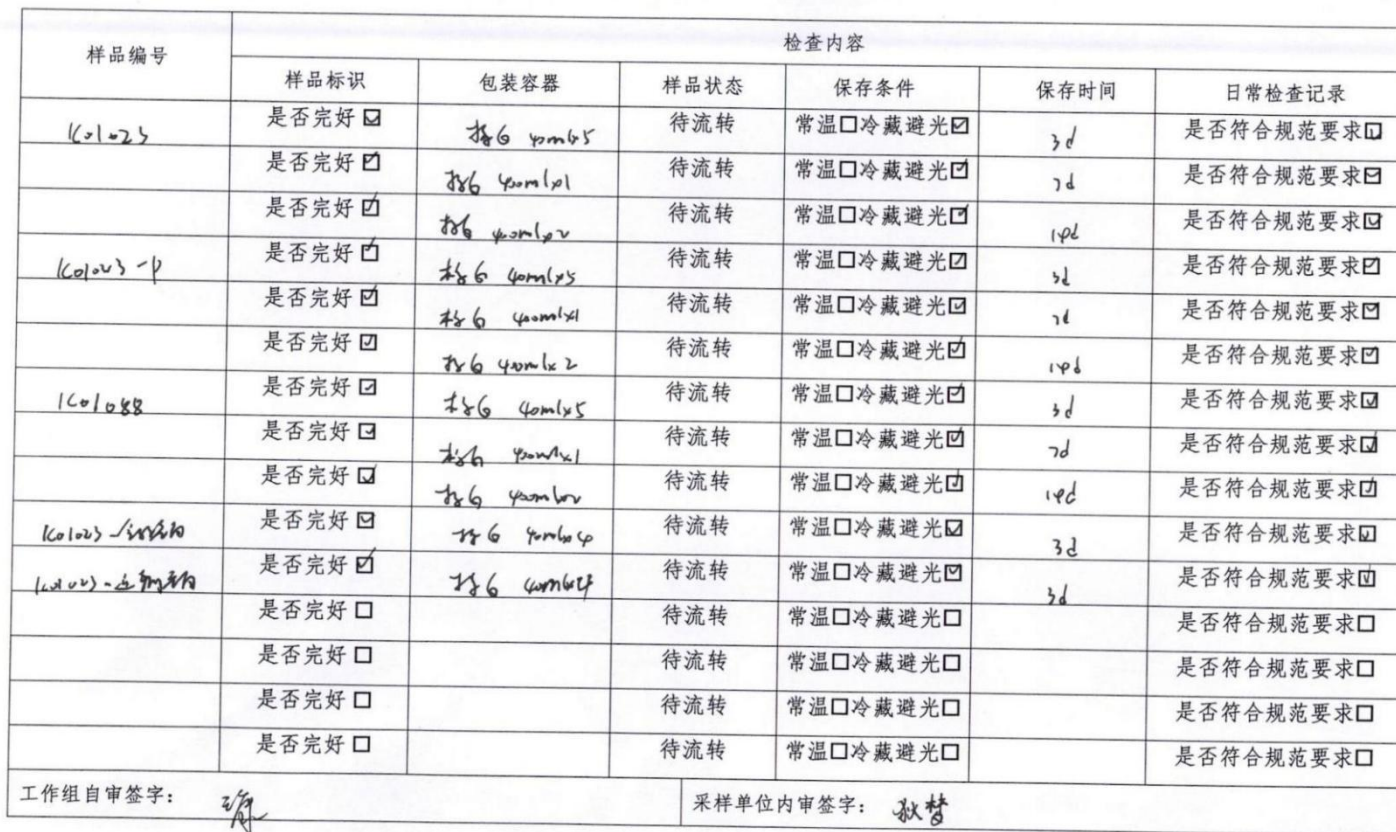 样品编号 检查内容
样品标识 包装容器 样品状态 保存条件 保存时间 日常检查记录
K01023 是否完好☑ 棕G 40ml×5 待流转 常温□冷藏避光☑ 3d 是否符合规范要求☑
是否完好☑ 棕G 400ml×1 待流转 常温□冷藏避光☑ 7d 是否符合规范要求☑
是否完好☑ 棕G 400ml×2 待流转 常温□冷藏避光☑ 14d 是否符合规范要求☑
K01023-P 是否完好☑ 棕G 40ml×5 待流转 常温□冷藏避光☑ 3d 是否符合规范要求☑
是否完好☑ 棕G 400ml×1 待流转 常温□冷藏避光☑ 7d 是否符合规范要求☑
是否完好☑ 棕G 400ml×2 待流转 常温□冷藏避光☑ 14d 是否符合规范要求☑
K01088 是否完好☑ 棕G 40ml×5 待流转 常温□冷藏避光☑ 3d 是否符合规范要求☑
是否完好☑ 棕G 400ml×1 待流转 常温□冷藏避光☑ 7d 是否符合规范要求☑
是否完好☑ 棕G 400ml×2 待流转 常温□冷藏避光☑ 14d 是否符合规范要求☑
K01023 是否完好☑ 棕G 40ml×4 待流转 常温□冷藏避光☑ 3d 是否符合规范要求☑
K01023 是否完好☑ 棕G 40ml×4 待流转 常温□冷藏避光☑ 3d 是否符合规范要求☑
是否完好□ 待流转 常温□冷藏避光□ 是否符合规范要求□
是否完好□ 待流转 常温□冷藏避光□ 是否符合规范要求□
是否完好□ 待流转 常温□冷藏避光□ 是否符合规范要求□
是否完好□ 待流转 常温□冷藏避光□ 是否符合规范要求□
工作组自审签字： 采样单位内审签字：